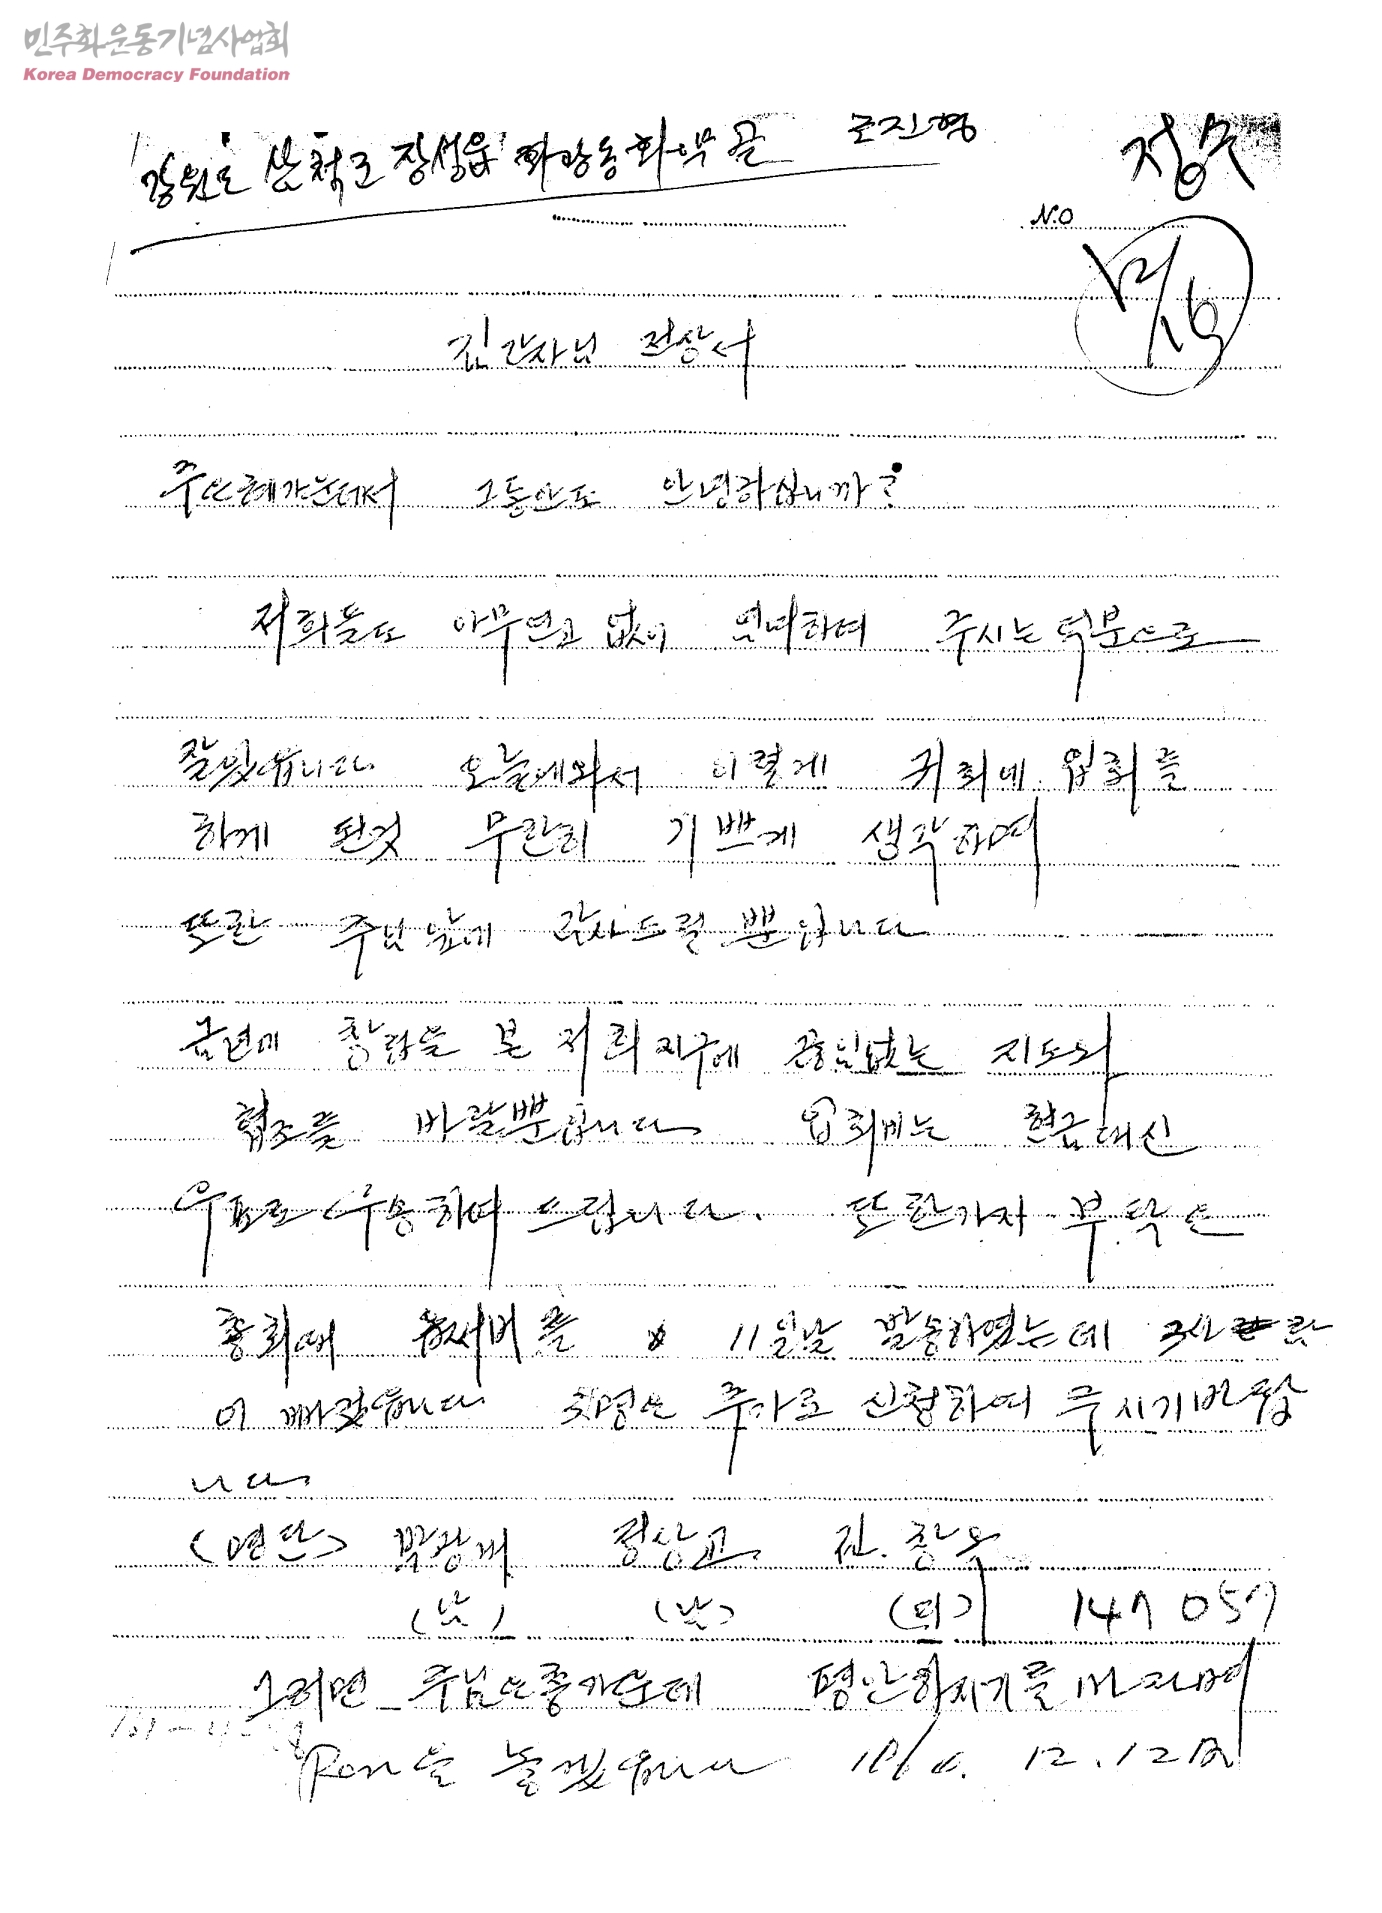 민주화운동기념사업회
Korea Democracy Foundation
강원도 삼척군 장성읍 화광동 화약골
정수
NO
12/16
김간사님 전상서
주은혜가운데서 그동안도 안녕하십니까?
저희들도 아무연고 없이 염려하여 주시는 덕분으로
잘있읍니다 오늘에와서 이렇게 귀회에 입회를
하게 된것 무한히 기쁘게 생각하며
또한 주님앞에 감사드릴 뿐입니다
금년에 창립을 본 저희 지구에 끊임없는 지도와
협조를 바랄뿐입니다 입회비는 현금대신
우표로 사용하여 드립니다. 또한가지 부탁은
총회때 11일날 발송하였는데 3사람
이 빠졌읍니다 3명은 추가로 신청하여 주시기바랍
니다
(명단) 박광배 정상교 진.창옥
(남) (남) (여) 147 057
그러면 주님은총가운데 평안하시기를 바라며
Pen을 놓겠읍니다 12.12日